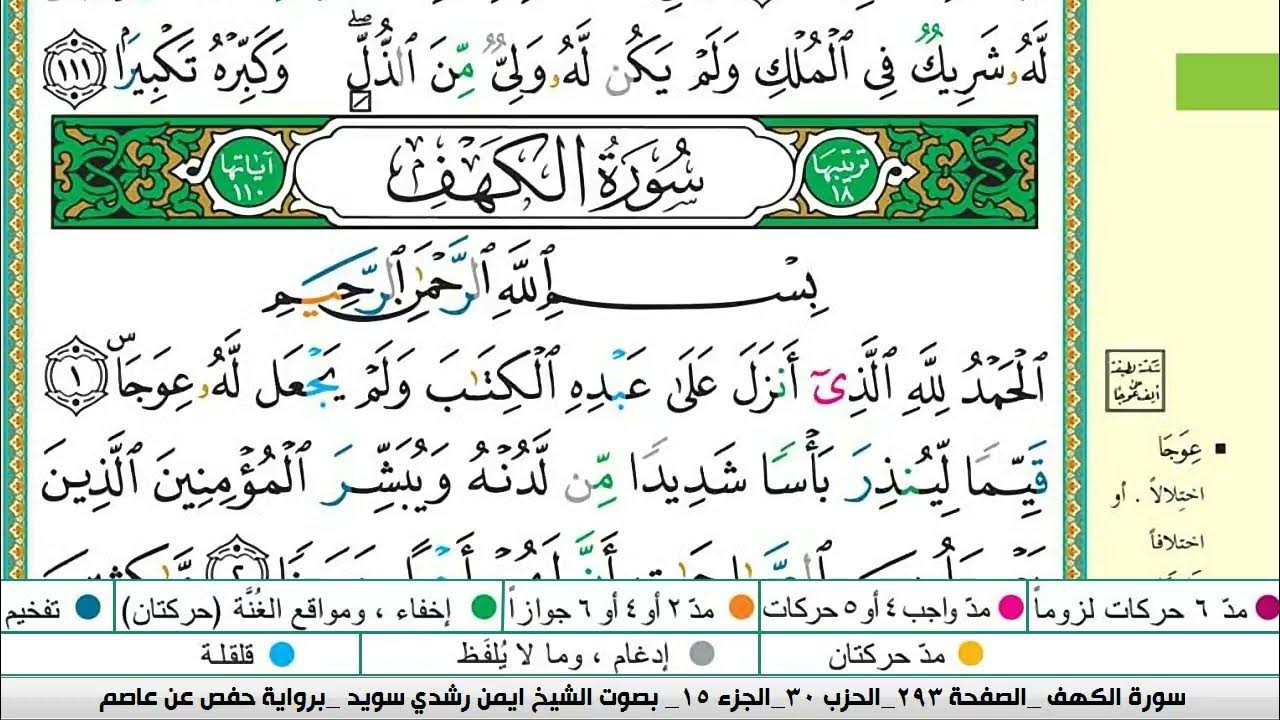 لَّهُۥ شَرِيكٌ فِى ٱلْمُلْكِ وَلَمْ يَكُن لَّهُۥ وَلِىٌّ مِّنَ ٱلذُّلِّ ۖ وَكَبِّرْهُ تَكْبِيرًۢا ١١١
ترتيبها ١٨ سُورَةُ الكَهْفِ آياتها ١١٠
بِسْمِ ٱللَّهِ ٱلرَّحْمَٰنِ ٱلرَّحِيمِ
ٱلْحَمْدُ لِلَّهِ ٱلَّذِىٓ أَنزَلَ عَلَىٰ عَبْدِهِ ٱلْكِتَٰبَ وَلَمْ يَجْعَل لَّهُۥ عِوَجَاۜ ١
سكتة لطيفة
قَيِّمًا لِّيُنذِرَ بَأْسًا شَدِيدًا مِّن لَّدُنْهُ وَيُبَشِّرَ ٱلْمُؤْمِنِينَ ٱلَّذِينَ
عِوَجَا
اختِلالاً . أو
اختلافاً
مدّ ٦ حركات لزوماً مدّ واجب ٤ أو ٥ حركات مدّ ٢ أو ٤ أو ٦ جوازاً إخفاء ، ومواقع الغُنَّة (حركتان) تفخيم
مدّ حركتان إدغام ، وما لا يُلفَظ قلقلة
سورة الكهف _الصفحة ٢٩٣_الحزب ٣٠_الجزء ١٥_ بصوت الشيخ ايمن رشدي سويد _برواية حفص عن عاصم